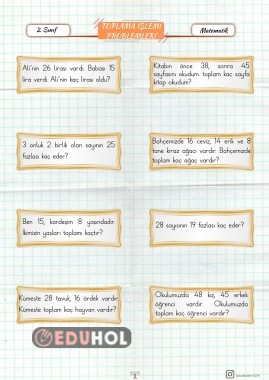 2. Sınıf
TOPLAMA İŞLEMİ
PROBLEMLERİ
Matematik
Ali'nin 26 lirası vardı. Babası 15
lira verdi. Ali'nin kaç lirası oldu?
Kitabın önce 38, sonra 45
sayfasını okudum. toplam kaç sayfa
kitap okudum?
3 onluk 2 birlik olan sayının 25
fazlası kaç eder?
Bahçemizde 16 ceviz, 14 erik ve 8
tane kiraz ağacı vardır. Bahçemizde
toplam kaç ağaç vardır?
Ben 15, kardeşim 8 yaşındadır.
İkimizin yaşları toplamı kaçtır?
28 sayısının 19 fazlası kaç eder?
Kümeste 28 tavuk, 16 ördek vardır.
Kümeste toplam kaç hayvan vardır?
Okulumuzda 48 kız, 45 erkek
öğrenci vardır. Okulumuzda
toplam kaç öğrenci vardır?
EDUHOL